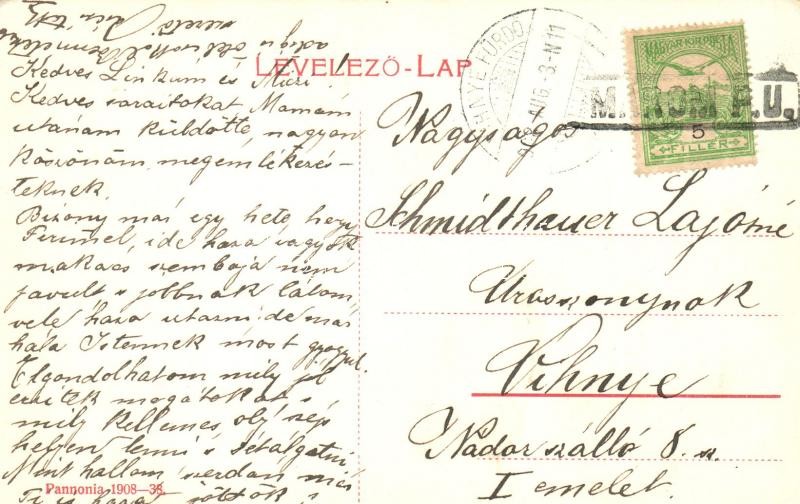 LEVELEZŐ-LAP
Kedves Linkum és Mici!
Kedves soraitokat Mamám
utánam küldötte, nagyon
köszönöm megemlékezés-
teknek.
Bizony már egy hete, hogy
Ferimel, ide haza vagyok
makacs szembaja nem
javult s jobbnak látom,
vele haza utazni de már
hála Istennek most gyógyul.
Elgondolhatom mily jól
érzitek magatokat s
mily kellemes oly szép
helyen lenni s sétálgatni
Mint hallom szerdán már
Ti is haza jöttök s
szerető
Pannonia 1908—38.
VIHNYEFÜRDŐ
AUG. 3
MAGYAR KIR. POSTA
5
FILLÉR
P.U.
Nagyságos
Schmidthauer Lajosné
Uraszonynak
Vihnye
Nádor szálló 8. sz.
I emelet.